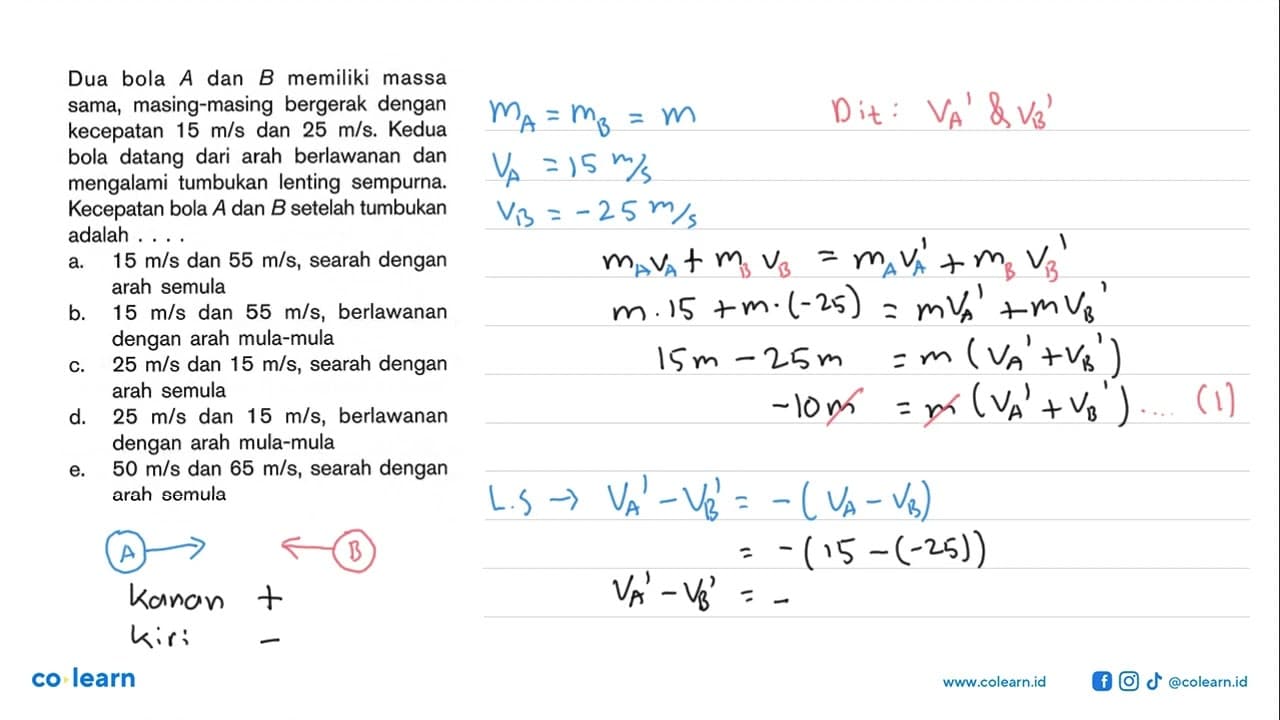 Dua bola A dan B memiliki massa
sama, masing-masing bergerak dengan
kecepatan 15 m/s dan 25 m/s. Kedua
bola datang dari arah berlawanan dan
mengalami tumbukan lenting sempurna.
Kecepatan bola A dan B setelah tumbukan
adalah . . . .
a. 15 m/s dan 55 m/s, searah dengan
arah semula
b. 15 m/s dan 55 m/s, berlawanan
dengan arah mula-mula
c. 25 m/s dan 15 m/s, searah dengan
arah semula
d. 25 m/s dan 15 m/s, berlawanan
dengan arah mula-mula
e. 50 m/s dan 65 m/s, searah dengan
arah semula
A B
kanan +
kiri -
m_A = m_B = m
V_A = 15 m/s
V_B = -25 m/s
Dit: V_A' & V_B'
m_A V_A + m_B V_B = m_A V_A' + m_B V_B'
m.15 + m.(-25) = mV_A' + mV_B'
15m - 25m = m (V_A' + V_B')
-10m = m (V_A' + V_B') .... (1)
L.S → V_A' - V_B' = -(V_A - V_B)
= -(15 - (-25))
V_A' - V_B' = -
co learn
www.colearn.id
@colearn.id